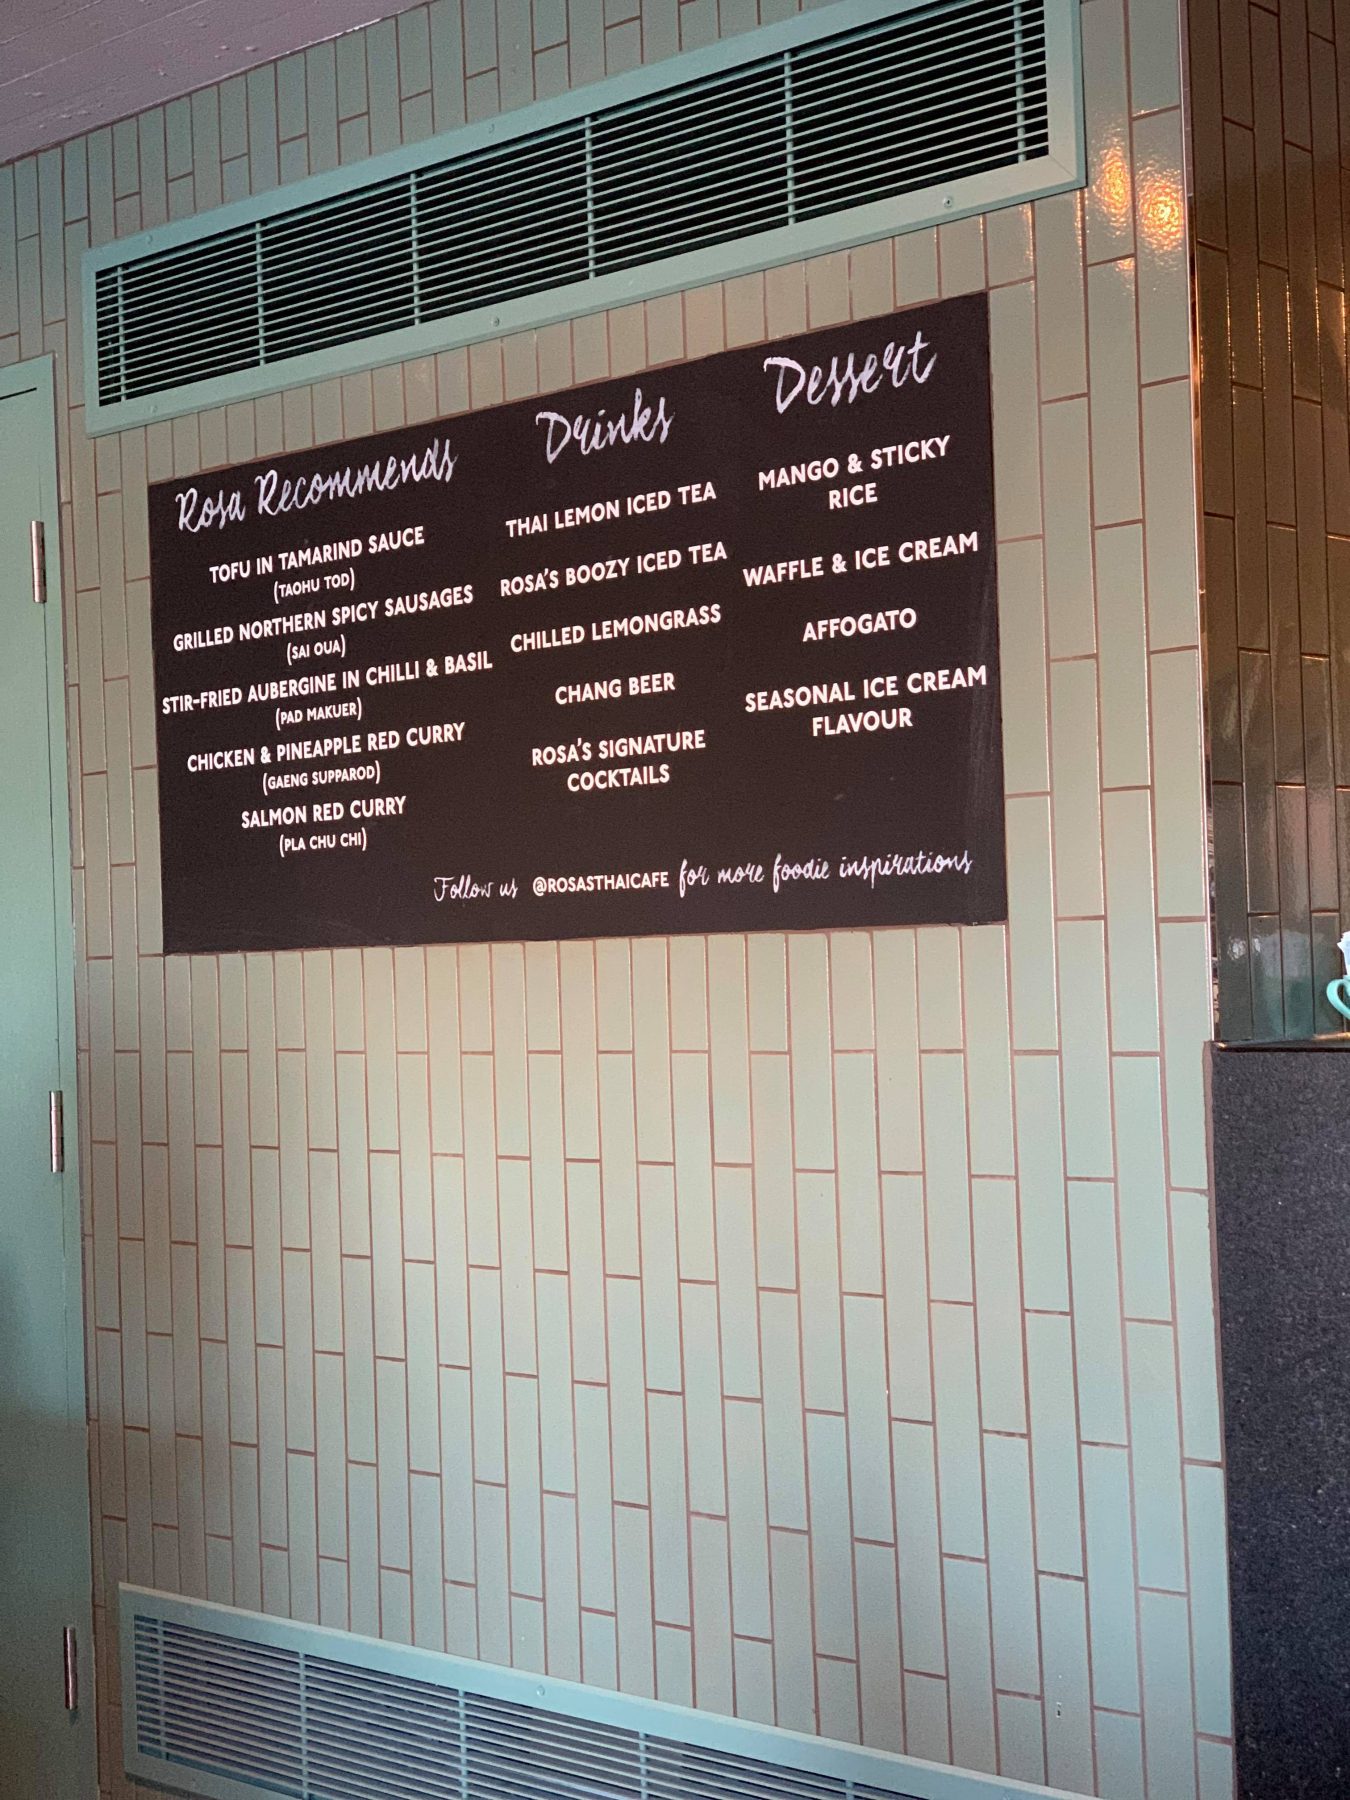 Rosa Recommends
TOFU IN TAMARIND SAUCE
(TAOHU TOD)
GRILLED NORTHERN SPICY SAUSAGES
(SAI OUA)
STIR-FRIED AUBERGINE IN CHILLI & BASIL
(PAD MAKUER)
CHICKEN & PINEAPPLE RED CURRY
(GAENG SUPPAROD)
SALMON RED CURRY
(PLA CHU CHI)
Drinks
THAI LEMON ICED TEA
ROSA'S BOOZY ICED TEA
CHILLED LEMONGRASS
CHANG BEER
ROSA'S SIGNATURE
COCKTAILS
Dessert
MANGO & STICKY
RICE
WAFFLE & ICE CREAM
AFFOGATO
SEASONAL ICE CREAM
FLAVOUR
Follow us @ROSASTHAICAFE for more foodie inspirations